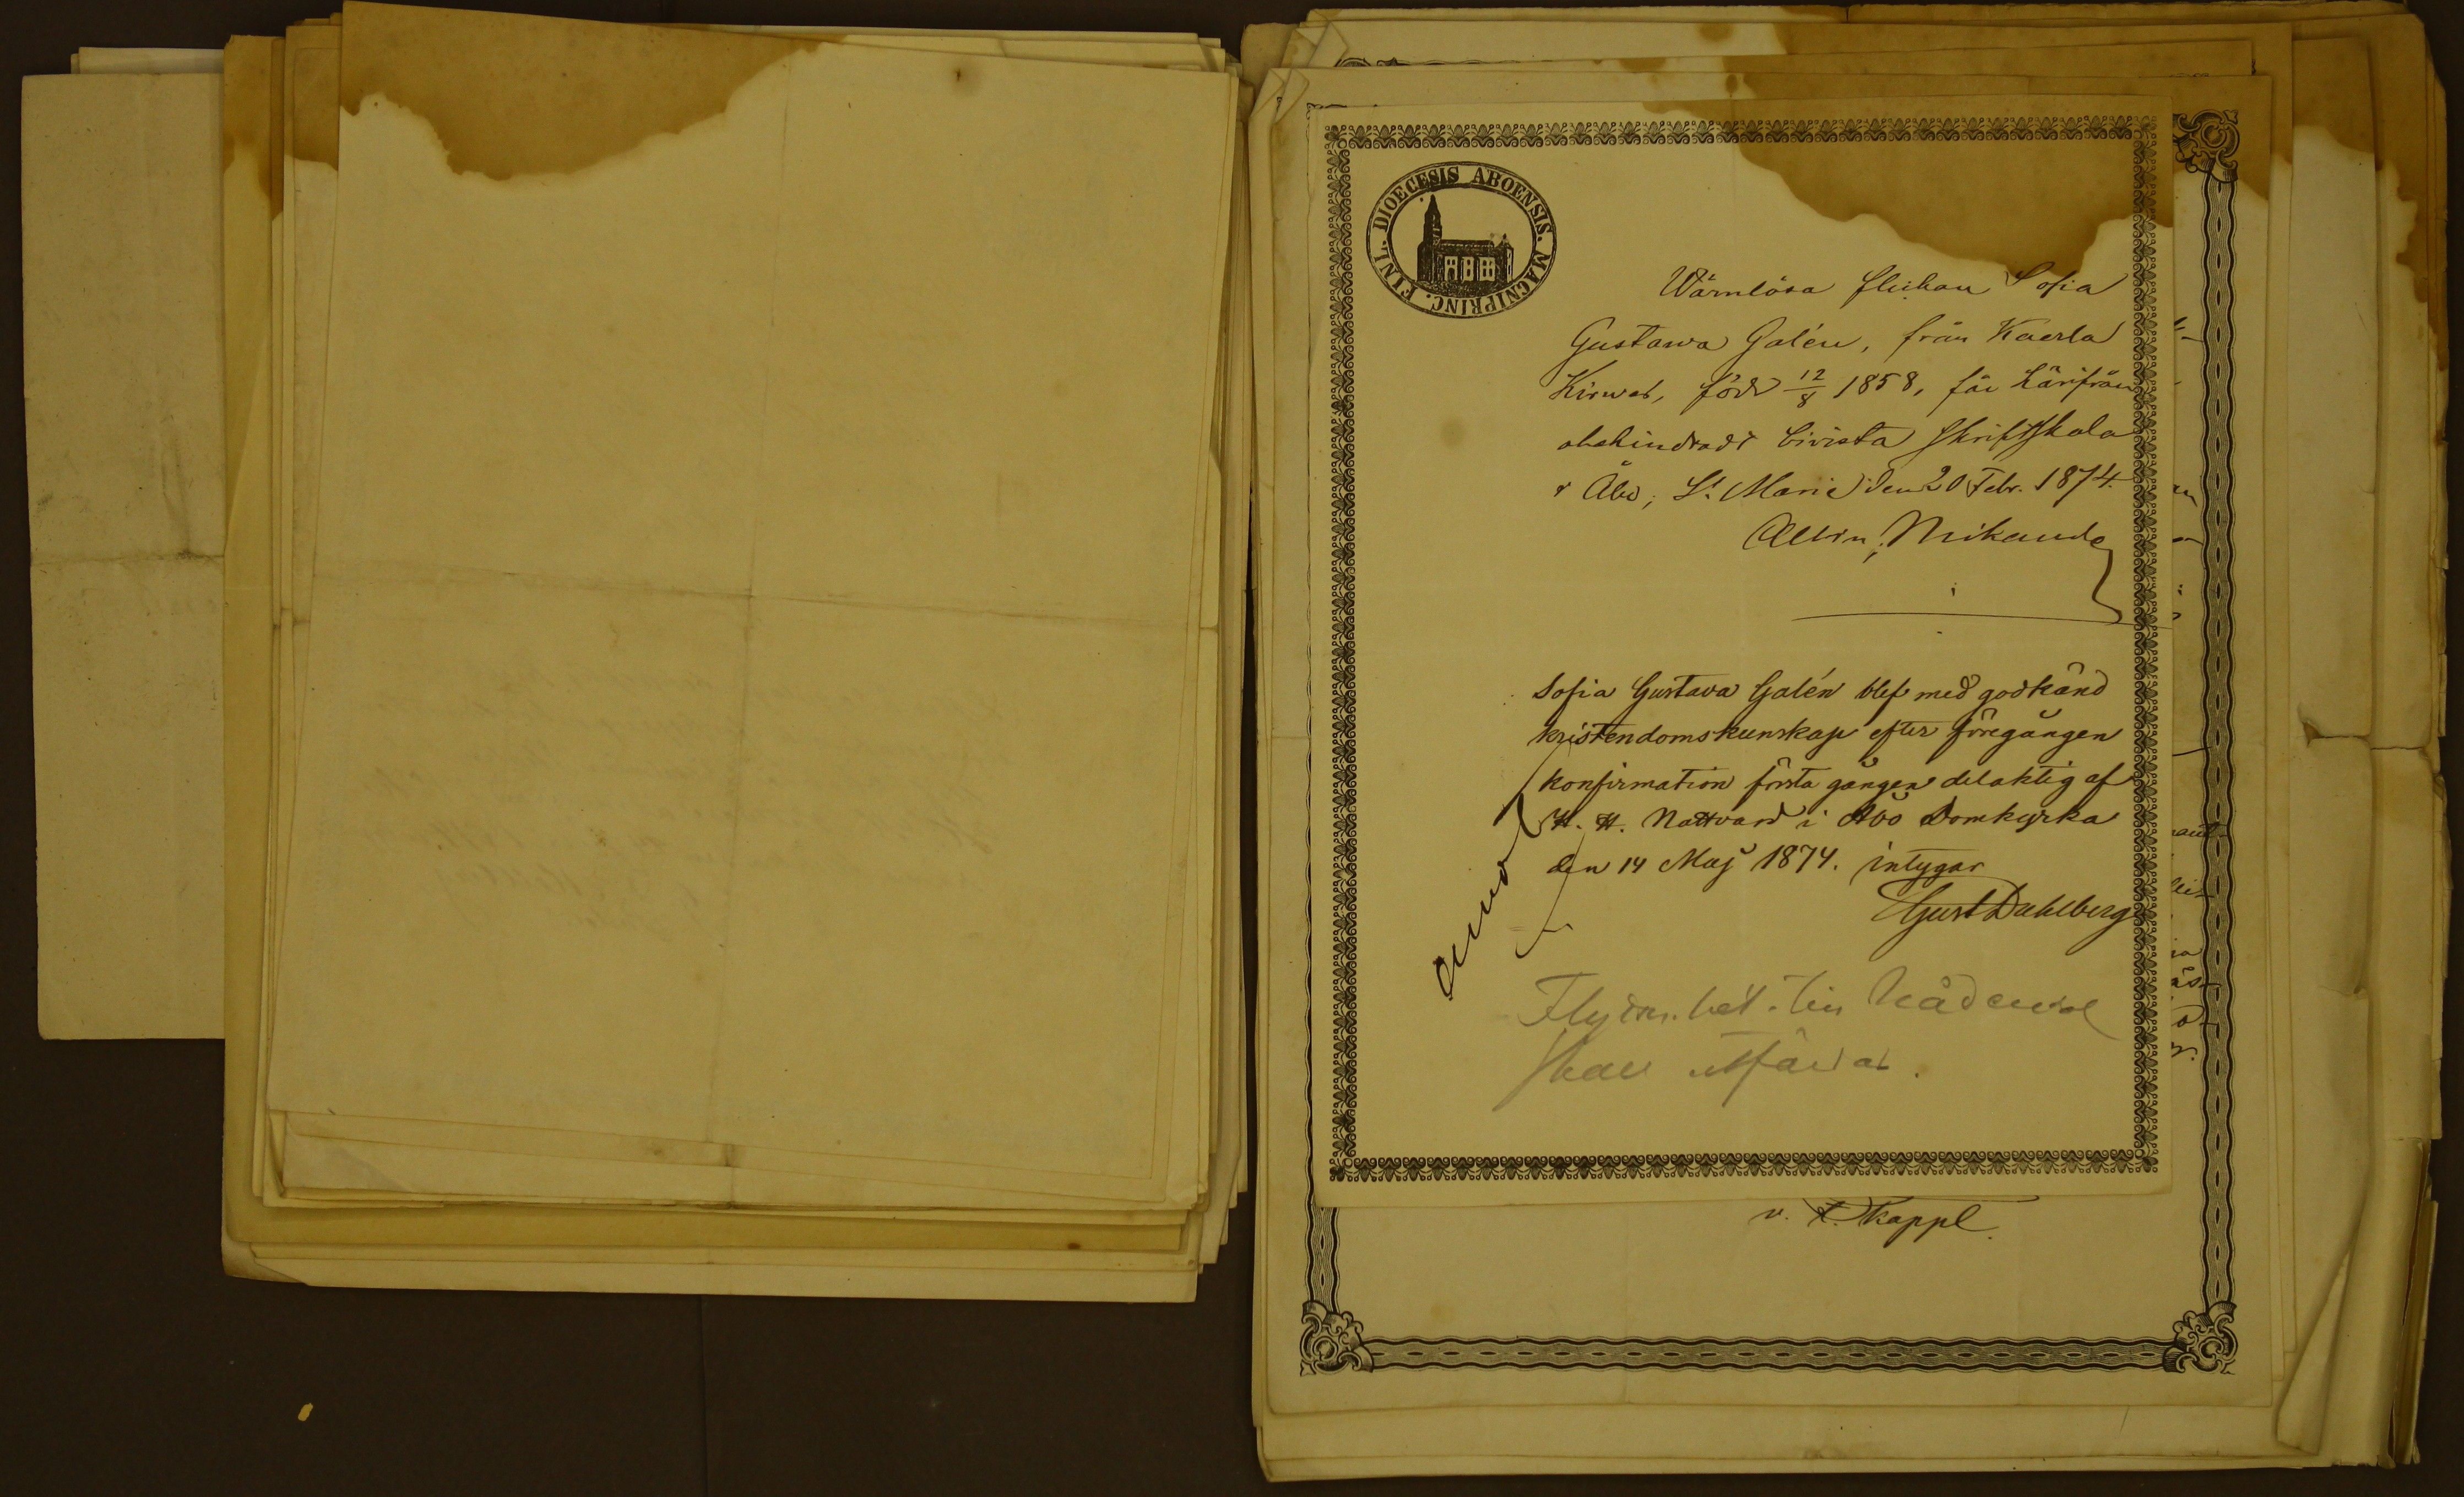 DIOECESIS ABOENSIS. MAGNIPRINC. FINL.
Wärnlösa flickan Sofia
Gustava Galén, från Kaerla
Kirves, född 12/8 1858, får härifrån
obehindradt bivista skriftskola
i Åbo; St Marie den 20 Febr. 1874.
Albin Mikander
Sofia Gustava Galén blef med godkänd
kristendomskunskap efter föregången
konfirmation första gången delaktig af
H. H. Nattvard i Åbo Domkyrka
den 14 Maj 1874. intygar
Gust Dahlberg
till Nådendal
utfärdas.
v. Kappl.